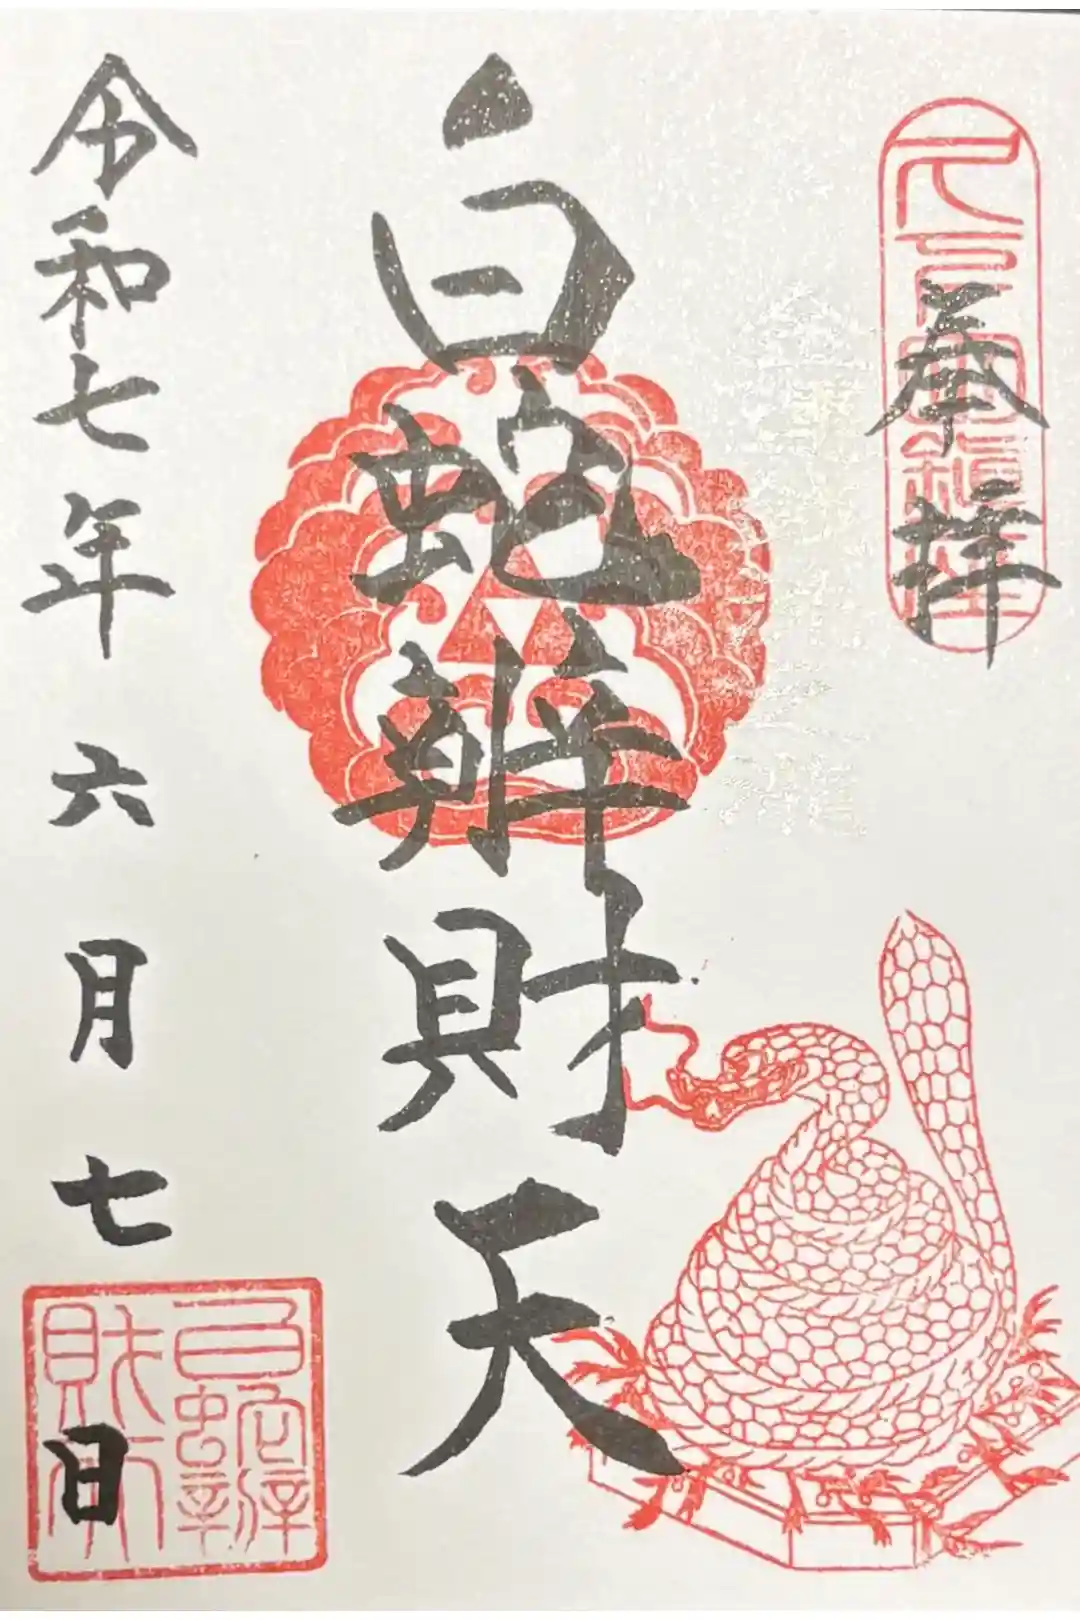 奉拝
白蛇辨財天
令和七年六月七日
白蛇辨財天